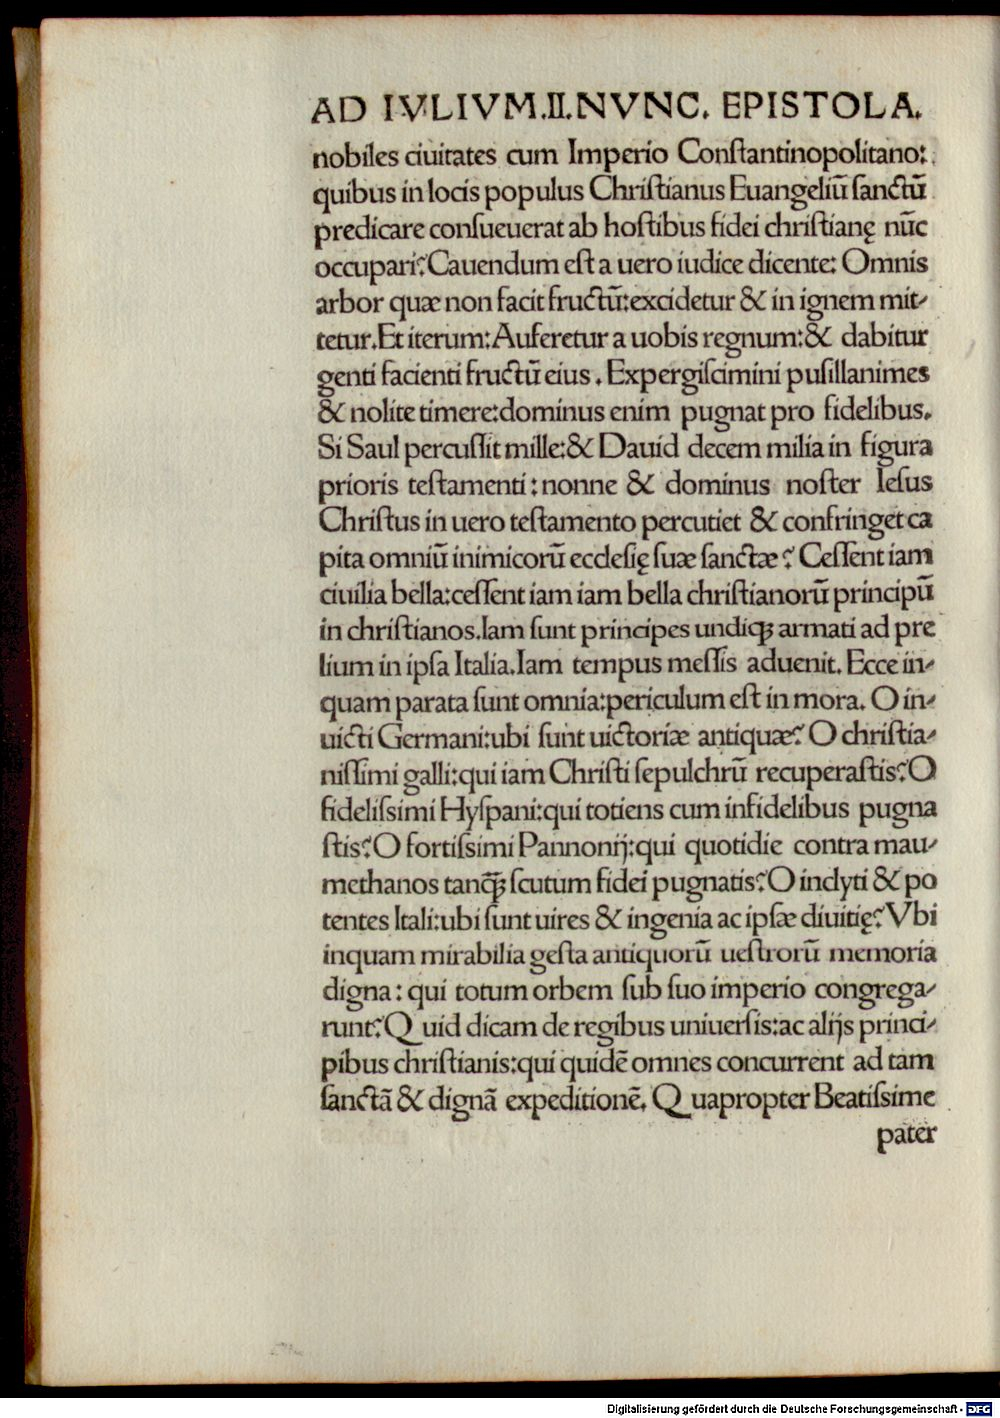 AD IVLIVM.II.NVNC. EPISTOLA.
nobiles ciuitates cum Imperio Conſtantinopolitano:
quibus in locis populus Chriſtianus Euangeliū ſanctū
predicare conſueuerat ab hoſtibus fidei chriſtianę nūc
occupari?Cauendum eſt a uero iudice dicente: Omnis
arbor quæ non facit fructū:excidetur & in ignem mit-
tetur.Et iterum:Auferetur a uobis regnum:& dabitur
genti facienti fructū eius . Expergiſcimini puſillanimes
& nolite timere:dominus enim pugnat pro fidelibus.
Si Saul percuſſit mille:& Dauid decem milia in figura
prioris teſtamenti : nonne & dominus noſter Ieſus
Chriſtus in uero teſtamento percutiet & confringet ca
pita omniū inimicorū eccleſię ſuæ ſanctæ ? Ceſſent iam
ciuilia bella:ceſſent iam iam bella chriſtianorū principū
in chriſtianos.Iam ſunt principes undiqꝫ armati ad pre
lium in ipſa Italia.Iam tempus meſſis aduenit. Ecce in-
quam parata ſunt omnia:periculum eſt in mora. O in-
uicti Germani:ubi ſunt uictoriæ antiquæ? O chriſtia-
niſſimi galli:qui iam Chriſti ſepulchrū recuperaſtis?O
fideliſsimi Hyſpani:qui totiens cum infidelibus pugna
ſtis?O fortiſsimi Pannonij:qui quotidie contra mau-
methanos tanqꝫ̄ ſcutum fidei pugnatis?O inclyti & po
tentes Itali:ubi ſunt uires & ingenia ac ipſæ diuitię?Vbi
inquam mirabilia geſta antiquorū ueſtrorū memoria
digna : qui totum orbem ſub ſuo imperio congrega-
runt?Q uid dicam de regibus uniuerſis:ac alijs princi-
pibus chriſtianis:qui quidē omnes concurrent ad tam
ſanctā & dignā expeditionē. Q uapropter Beatiſsime
pater
Digitalisierung gefördert durch die Deutsche Forschungsgemeinschaft - DFG